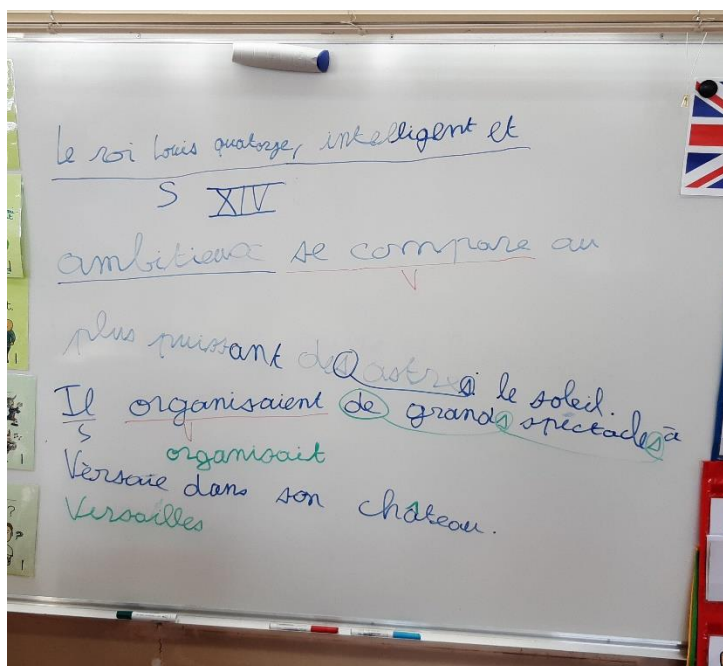 Le roi Louis quatorze, intelligent et
S XIV
ambitieux se compare au
V
plus puissant des astres : le soleil.
Il organisaient de grands spectacles à
S V
organisait
Versaie dans son château.
Versailles